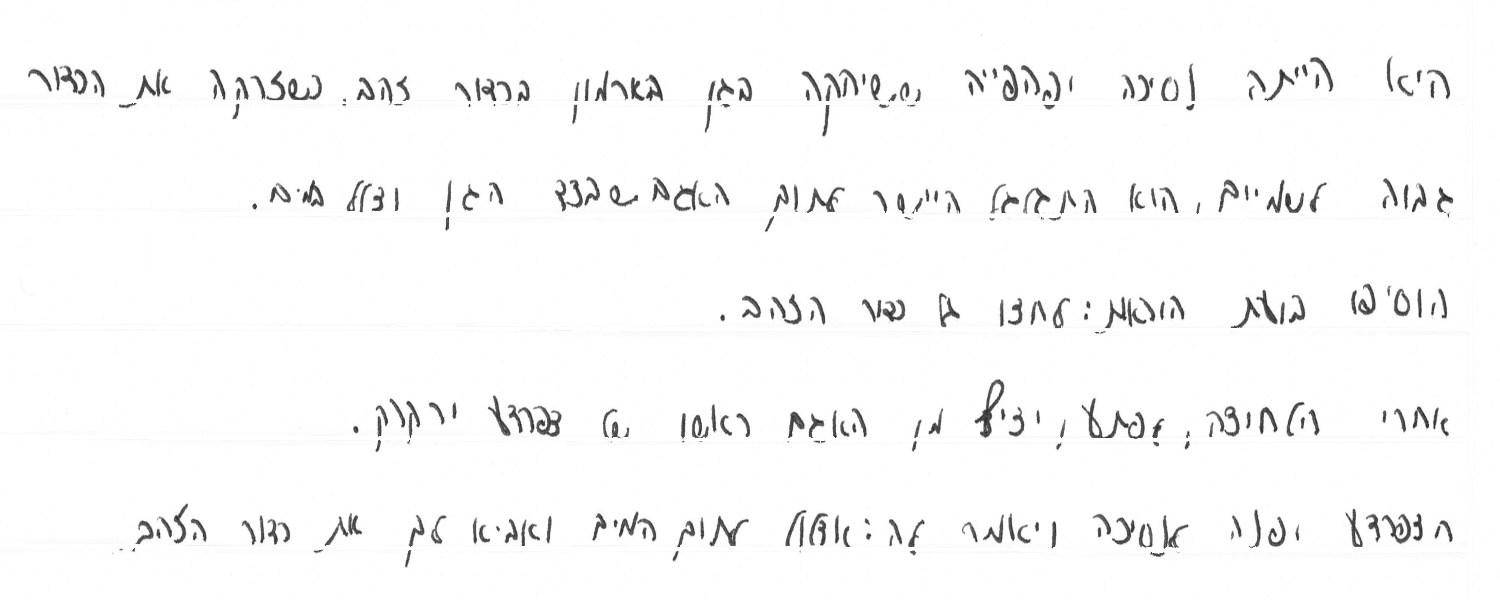 היא הייתה נסיכה יפהפייה ששיחקה בגן בארמון בכדור זהב. כשזרקה את הכדור
גבוה לשמיים, הוא התגלגל היישר לתוך האגם שבצד הגן וצלל במים.
הוסיפו בועת הוראות: לחצו על כדור הזהב.
אחרי הלחיצה, לפתע, יציץ מן האגם ראשו של צפרדע ירקרק.
הצפרדע יפנה לנסיכה ויאמר לה: אצלול לתוך המים ואביא לך את כדור הזהב.